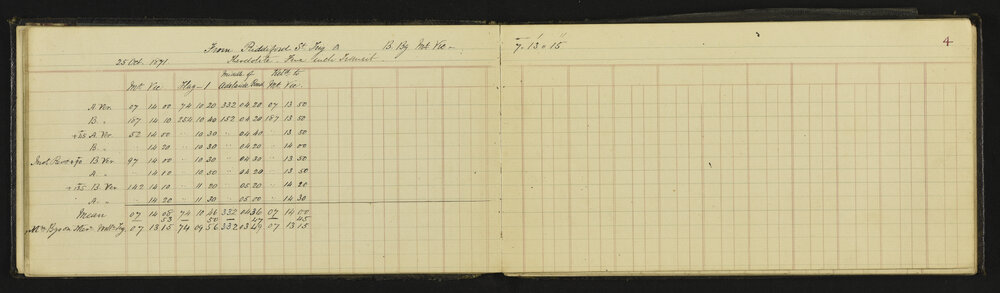 From Riddiford St Trig A B. By Mt Vic – 7. 13. 15 4
25 Oct. 1871. Five Inch Transit
Middle of Retn to
Mt Vic Flag – 1 Adelaide Road Mt Vic.
A. Ver 07 14 00 74 10 20 332 04 20 07 13 50
B. „ 187 14 10 254 10 40 152 04 20 187 13 50
+ 135 A. Ver 52 14 00 „ 10 30 „ 04 40 „ 13 50
B. „ „ 14 20 „ 10 30 „ 04 20 „ 14 00
B. Ver 97 14 00 „ 10 30 „ 04 30 „ 13 50
A „ „ 14 10 „ 10 50 „ 04 20 „ 13 50
+ 135 B. Ver 142 14 10 „ 11 20 „ 05 20 „ 14 20
A. „ „ 14 20 „ 11 30 „ 05 00 „ 14 30
Mean 07 14 08 74 10 46 332 04 36 07 14 00
53 50 47 45
07 13 15 74 09 56 332 03 49 07 13 15